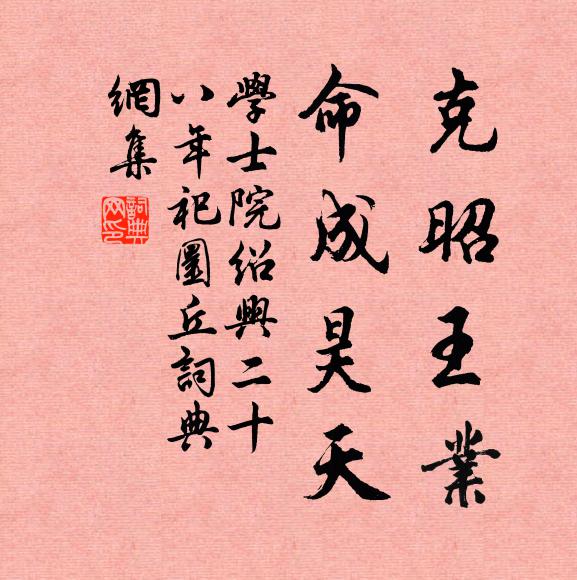 克昭王業
命成昊天
學士院紹興二十
八年祀圜丘詞典
網集
詞典網印